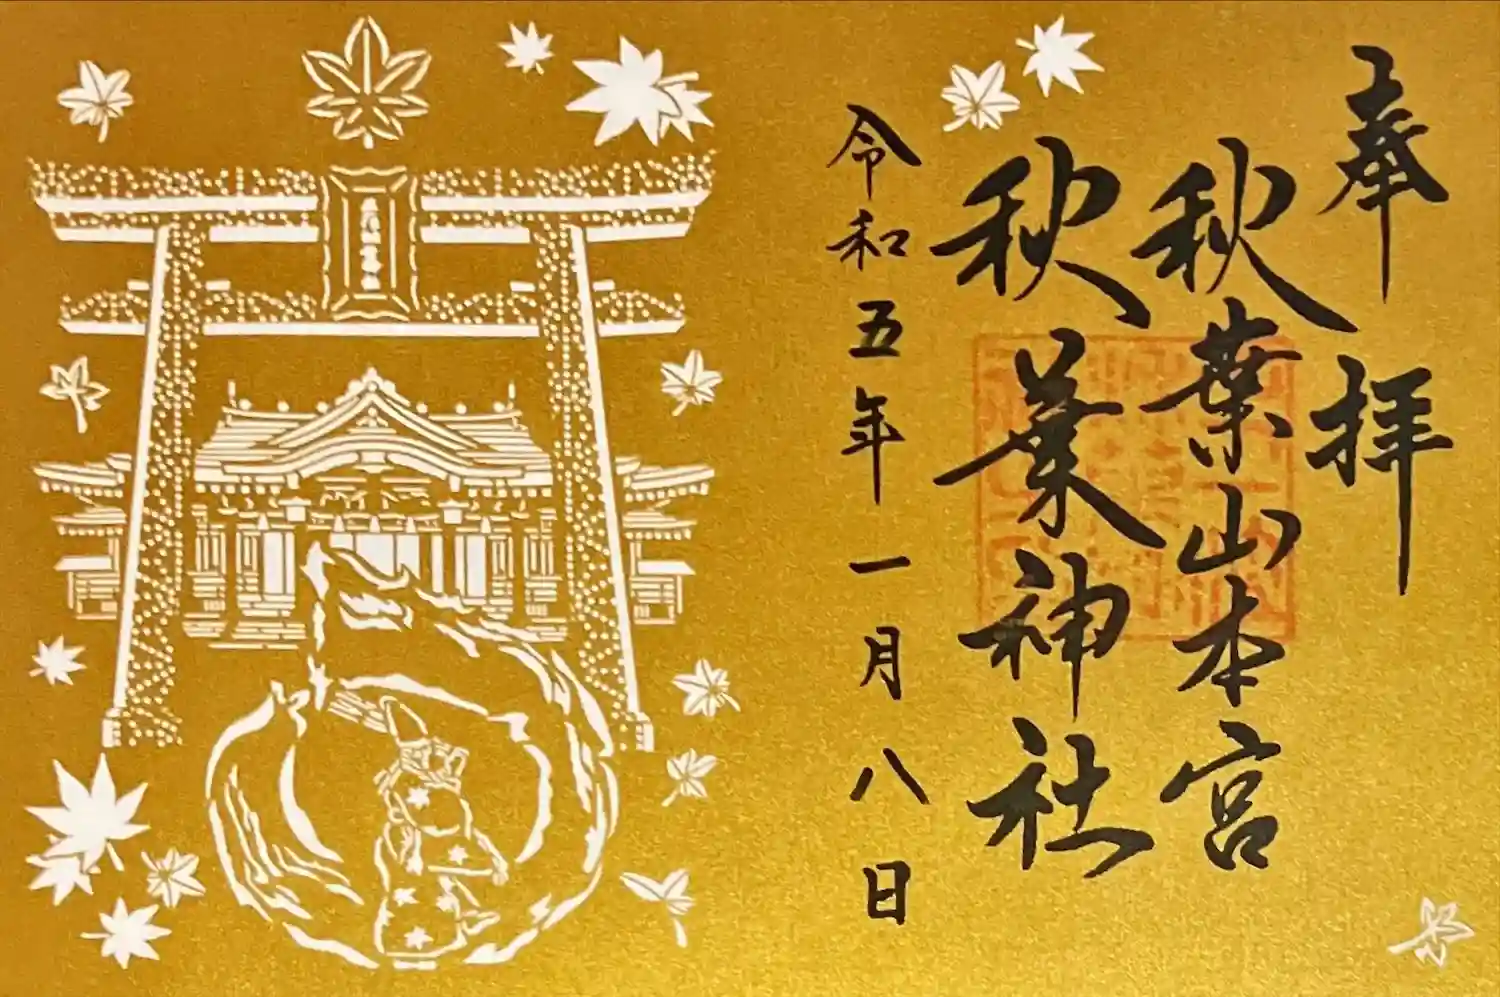 奉拝
秋葉山本宮
秋葉神社
令和五年一月八日